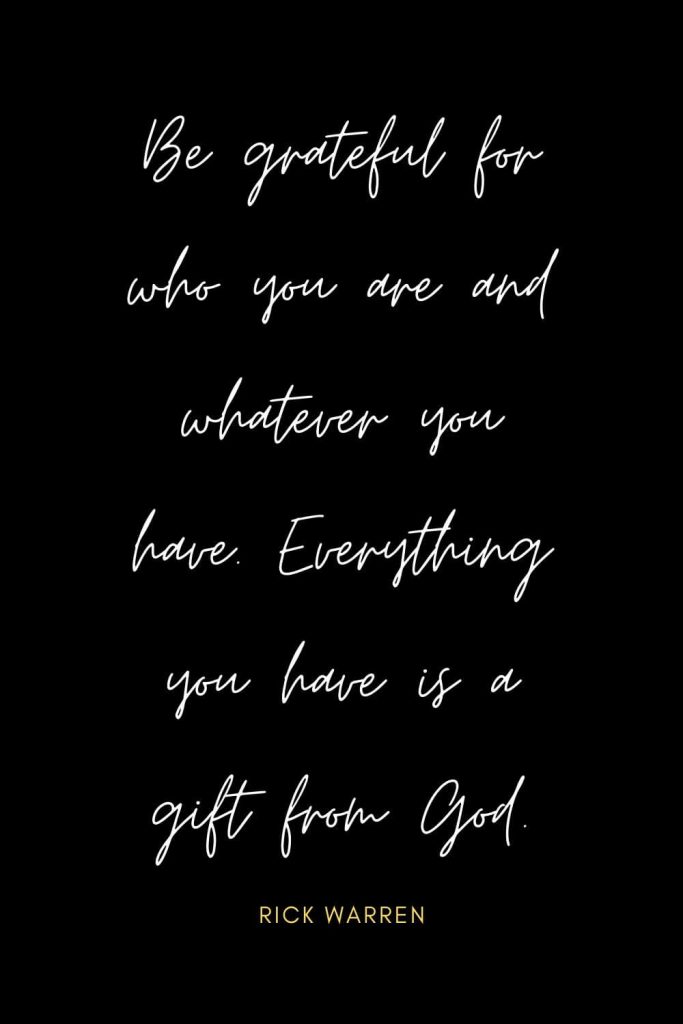 Be grateful for
who you are and
whatever you
have. Everything
you have is a
gift from God.
RICK WARREN